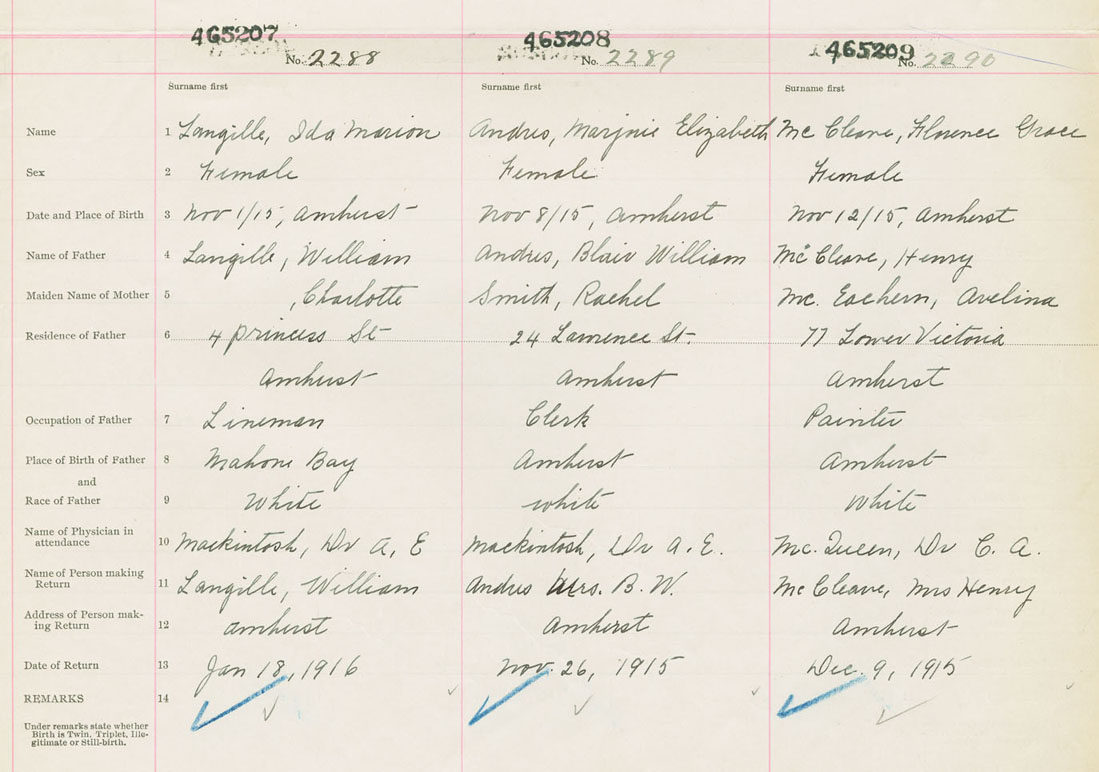 465207 465208 465209
No. 2288 No. 2289 No. 2290
Surname first Surname first Surname first
Name 1 Langille, Ida Marion Andres, Marjorie Elizabeth Mc Cleave, Florence Grace
Sex 2 Female Female Female
Date and Place of Birth 3 Nov 1/15, Amherst Nov 8/15, Amherst Nov 12/15, Amherst
Name of Father 4 Langille, William Andres, Blair William McCleave, Henry
Maiden Name of Mother 5 , Charlotte Smith, Rachel Mc. Eachern, Avelina
Residence of Father 6 4 Princess St 24 Lawrence St. 77 Lower Victoria
Amherst Amherst Amherst
Occupation of Father 7 Lineman Clerk Painter
Place of Birth of Father 8 Mahone Bay Amherst Amherst
and
Race of Father 9 White white White
Name of Physician in
attendance 10 Mackintosh, Dr A, E Mackintosh, Dr A. E. Mc. Queen, Dr C. A.
Name of Person making
Return 11 Langille, William Andres Mrs. B. W. McCleave, Mrs Henry
Address of Person mak-
ing Return 12 Amherst Amherst Amherst
Date of Return 13 Jan 18, 1916 Nov. 26, 1915 Dec. 9, 1915
REMARKS 14
Under remarks state whether
Birth is Twin, Triplet, Ille-
gitimate or Still-birth.